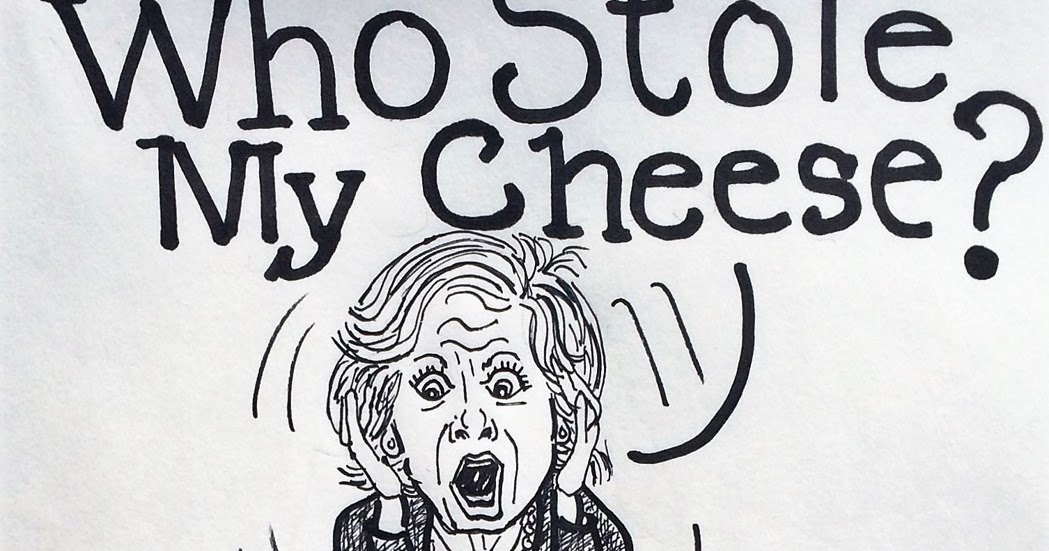 Who Stole
My Cheese?